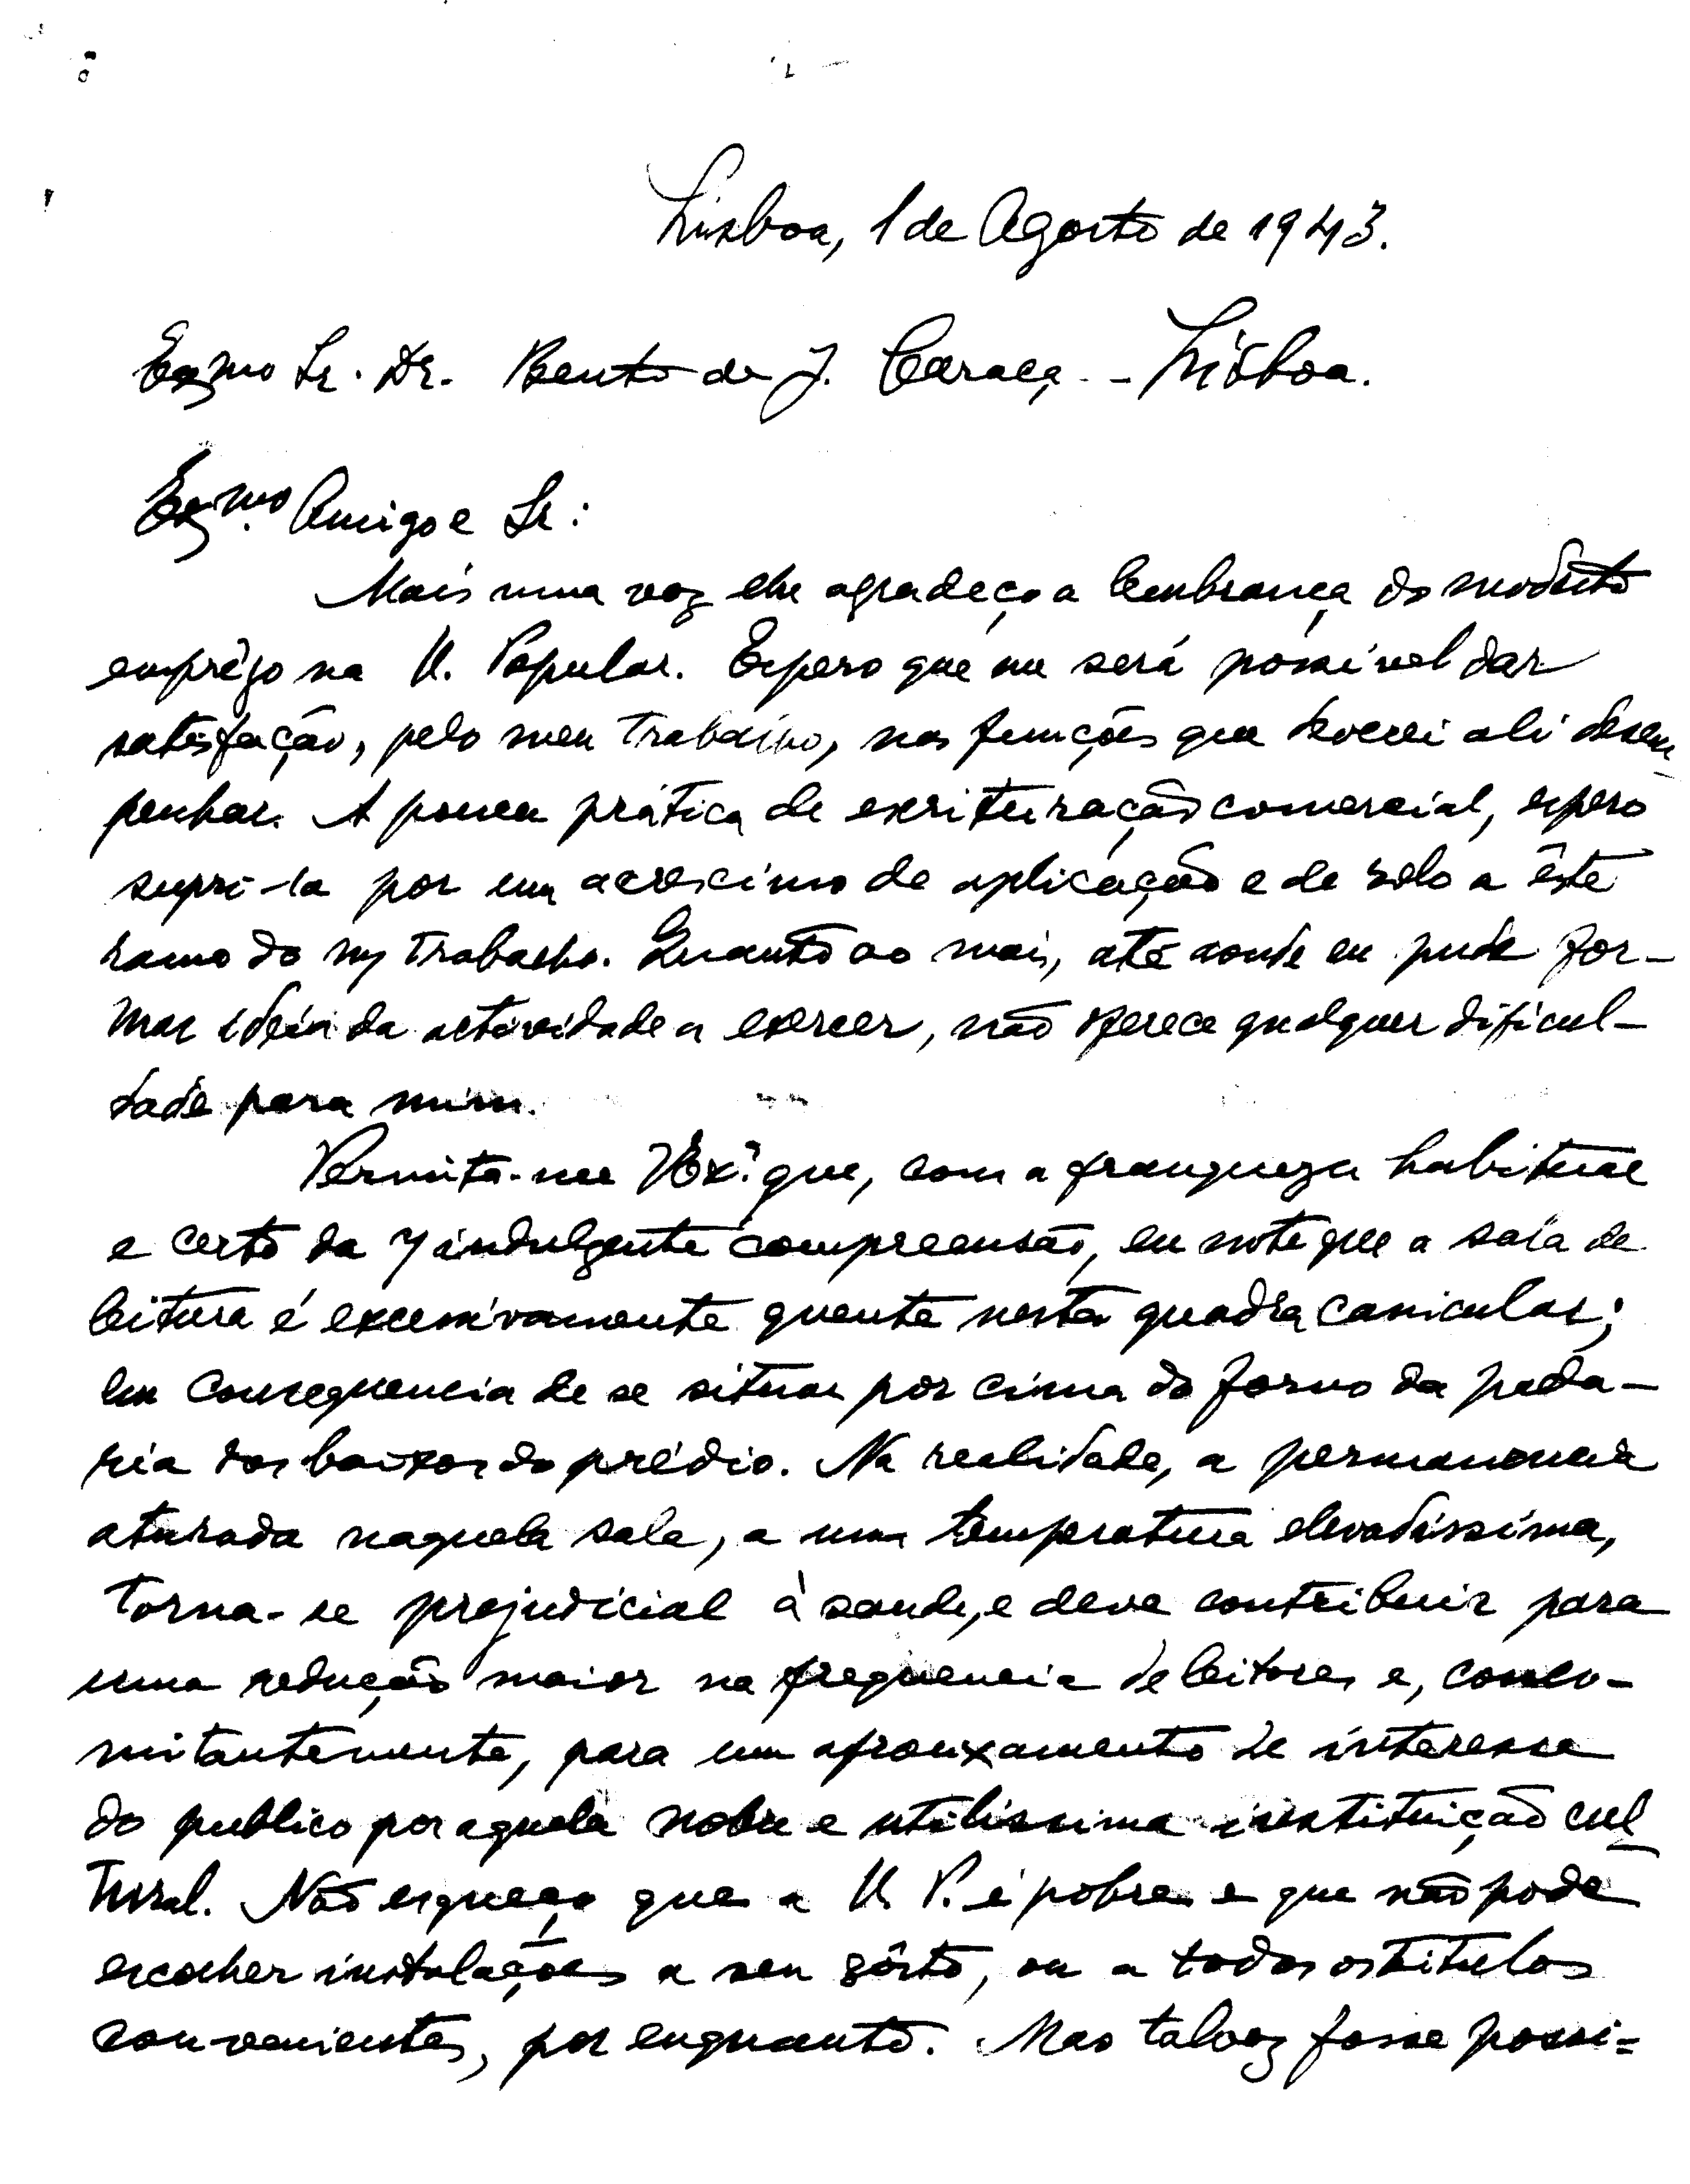 Lisboa, 1 de Agosto de 1943.
Exmo Sr. Dr. Bento de J. Caraça - Lisboa.
Exmo. Amigo e Sr:
Mais uma vez lhe agradeço a lembrança do modesto
emprêgo na U. Popular. Espero que me será possível dar
satisfação, pelo meu trabalho, nas funções que deverei ali desem-
penhar. A pouca prática de escrituração comercial, espero
supri-la por um acrescimo de aplicação e de zelo a êste
ramo do trabalho. Quanto ao mais, até aonde eu pude for-
mar ideia da actividade a exercer, não oferece qualquer dificul-
dade para mim.
Permita-me V.Ex.ª que, com a franqueza habitual
e certo da indulgente compreensão, eu note que a sala de
leitura é excessivamente quente nesta quadra canicular;
em consequencia de se situar por cima do forno da pada-
ria dos baixos do prédio. Na realidade, a permanencia
aturada naquela sala, a uma temperatura elevadissima,
torna-se prejudicial à saude, e deve contribuir para
uma redução maior na frequencia de leitores e, conco-
mitantemente, para um afrouxamento de interesse
do publico por aquela nobre e utilissima instituição cul-
tural. Não esqueço que a U. P. é pobre e que não pode
escolher instalações a seu gôsto, ou a todos os titulos
convenientes, por enquanto. Mas talvez fosse possi=